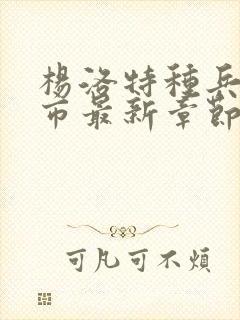 楊洛特種兵
市最新章節
可凡可不煩